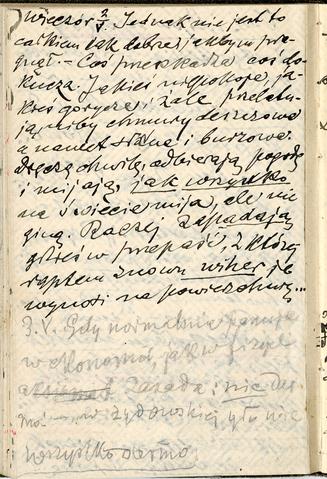 wieczór 2/V. Jednak nie jest to
całkiem tak dobrze jakbym pra-
gnął. – Coś przeszkadza coś do-
kucza. Jakieś niepokoje, ja-
kieś gorycze i żale przelatu-
ją niby chmury deszczowe
a nawet słotne i burzowe.
Dręczą chwilę, odbierają pogodę
i mijają, jak wszystko
na świecie mija, ale nie
giną. Raczej zapadają
gdzieś w przepaść, z której
raptem znowu wicher je
wynosi na powierzchnię...
3.V. Gdy normalnie panuje
w ekonomii, jak w fizyce
zasada: nie ma
w żydowskiej nie
wszystko darmo